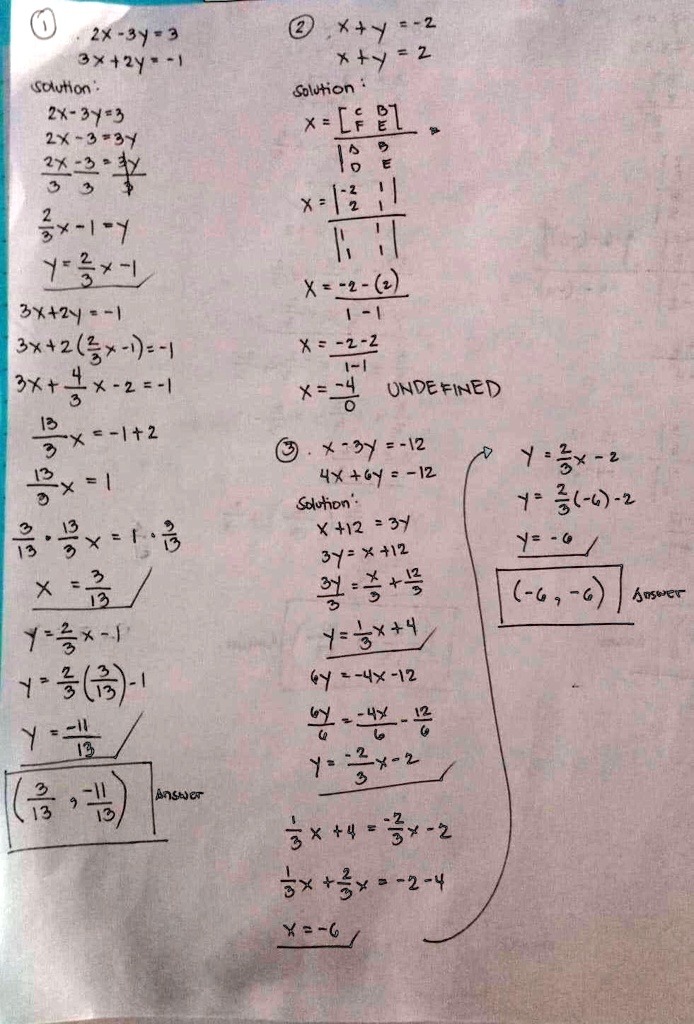 ① 2x-3y=3
3x+2y=-1
solution:
2x-3y=3
2x-3=3y
2x/3 - 3/3 = 3y/3
2/3x-1=y
y=2/3x-1
3x+2y=-1
3x+2(2/3x-1)=-1
3x+4/3x-2=-1
13/3x=-1+2
13/3x=1
3/13 • 13/3x=1•3/13
x=3/13
y=2/3x-1
y=2/3(3/13)-1
y=-11/13
(3/13, -11/13) Answer
② x+y=-2
x+y=2
solution:
x=[C B
F E]
|A B
D E
x=|-2 1
2 1|
|1 1
1 1|
x=-2-(2)
1-1
x=-2-2
1-1
x=-4/0 UNDEFINED
③ x-3y=-12
4x+6y=-12
Solution:
x+12=3y
3y=x+12
3y/3=x/3+12/3
y=1/3x+4
6y=-4x-12
6y/6=-4x/6-12/6
y=-2/3x-2
1/3x+4=-2/3x-2
1/3x+2/3x=-2-4
x=-6
y=2/3x-2
y=2/3(-6)-2
y=-6
(-6,-6) Answer